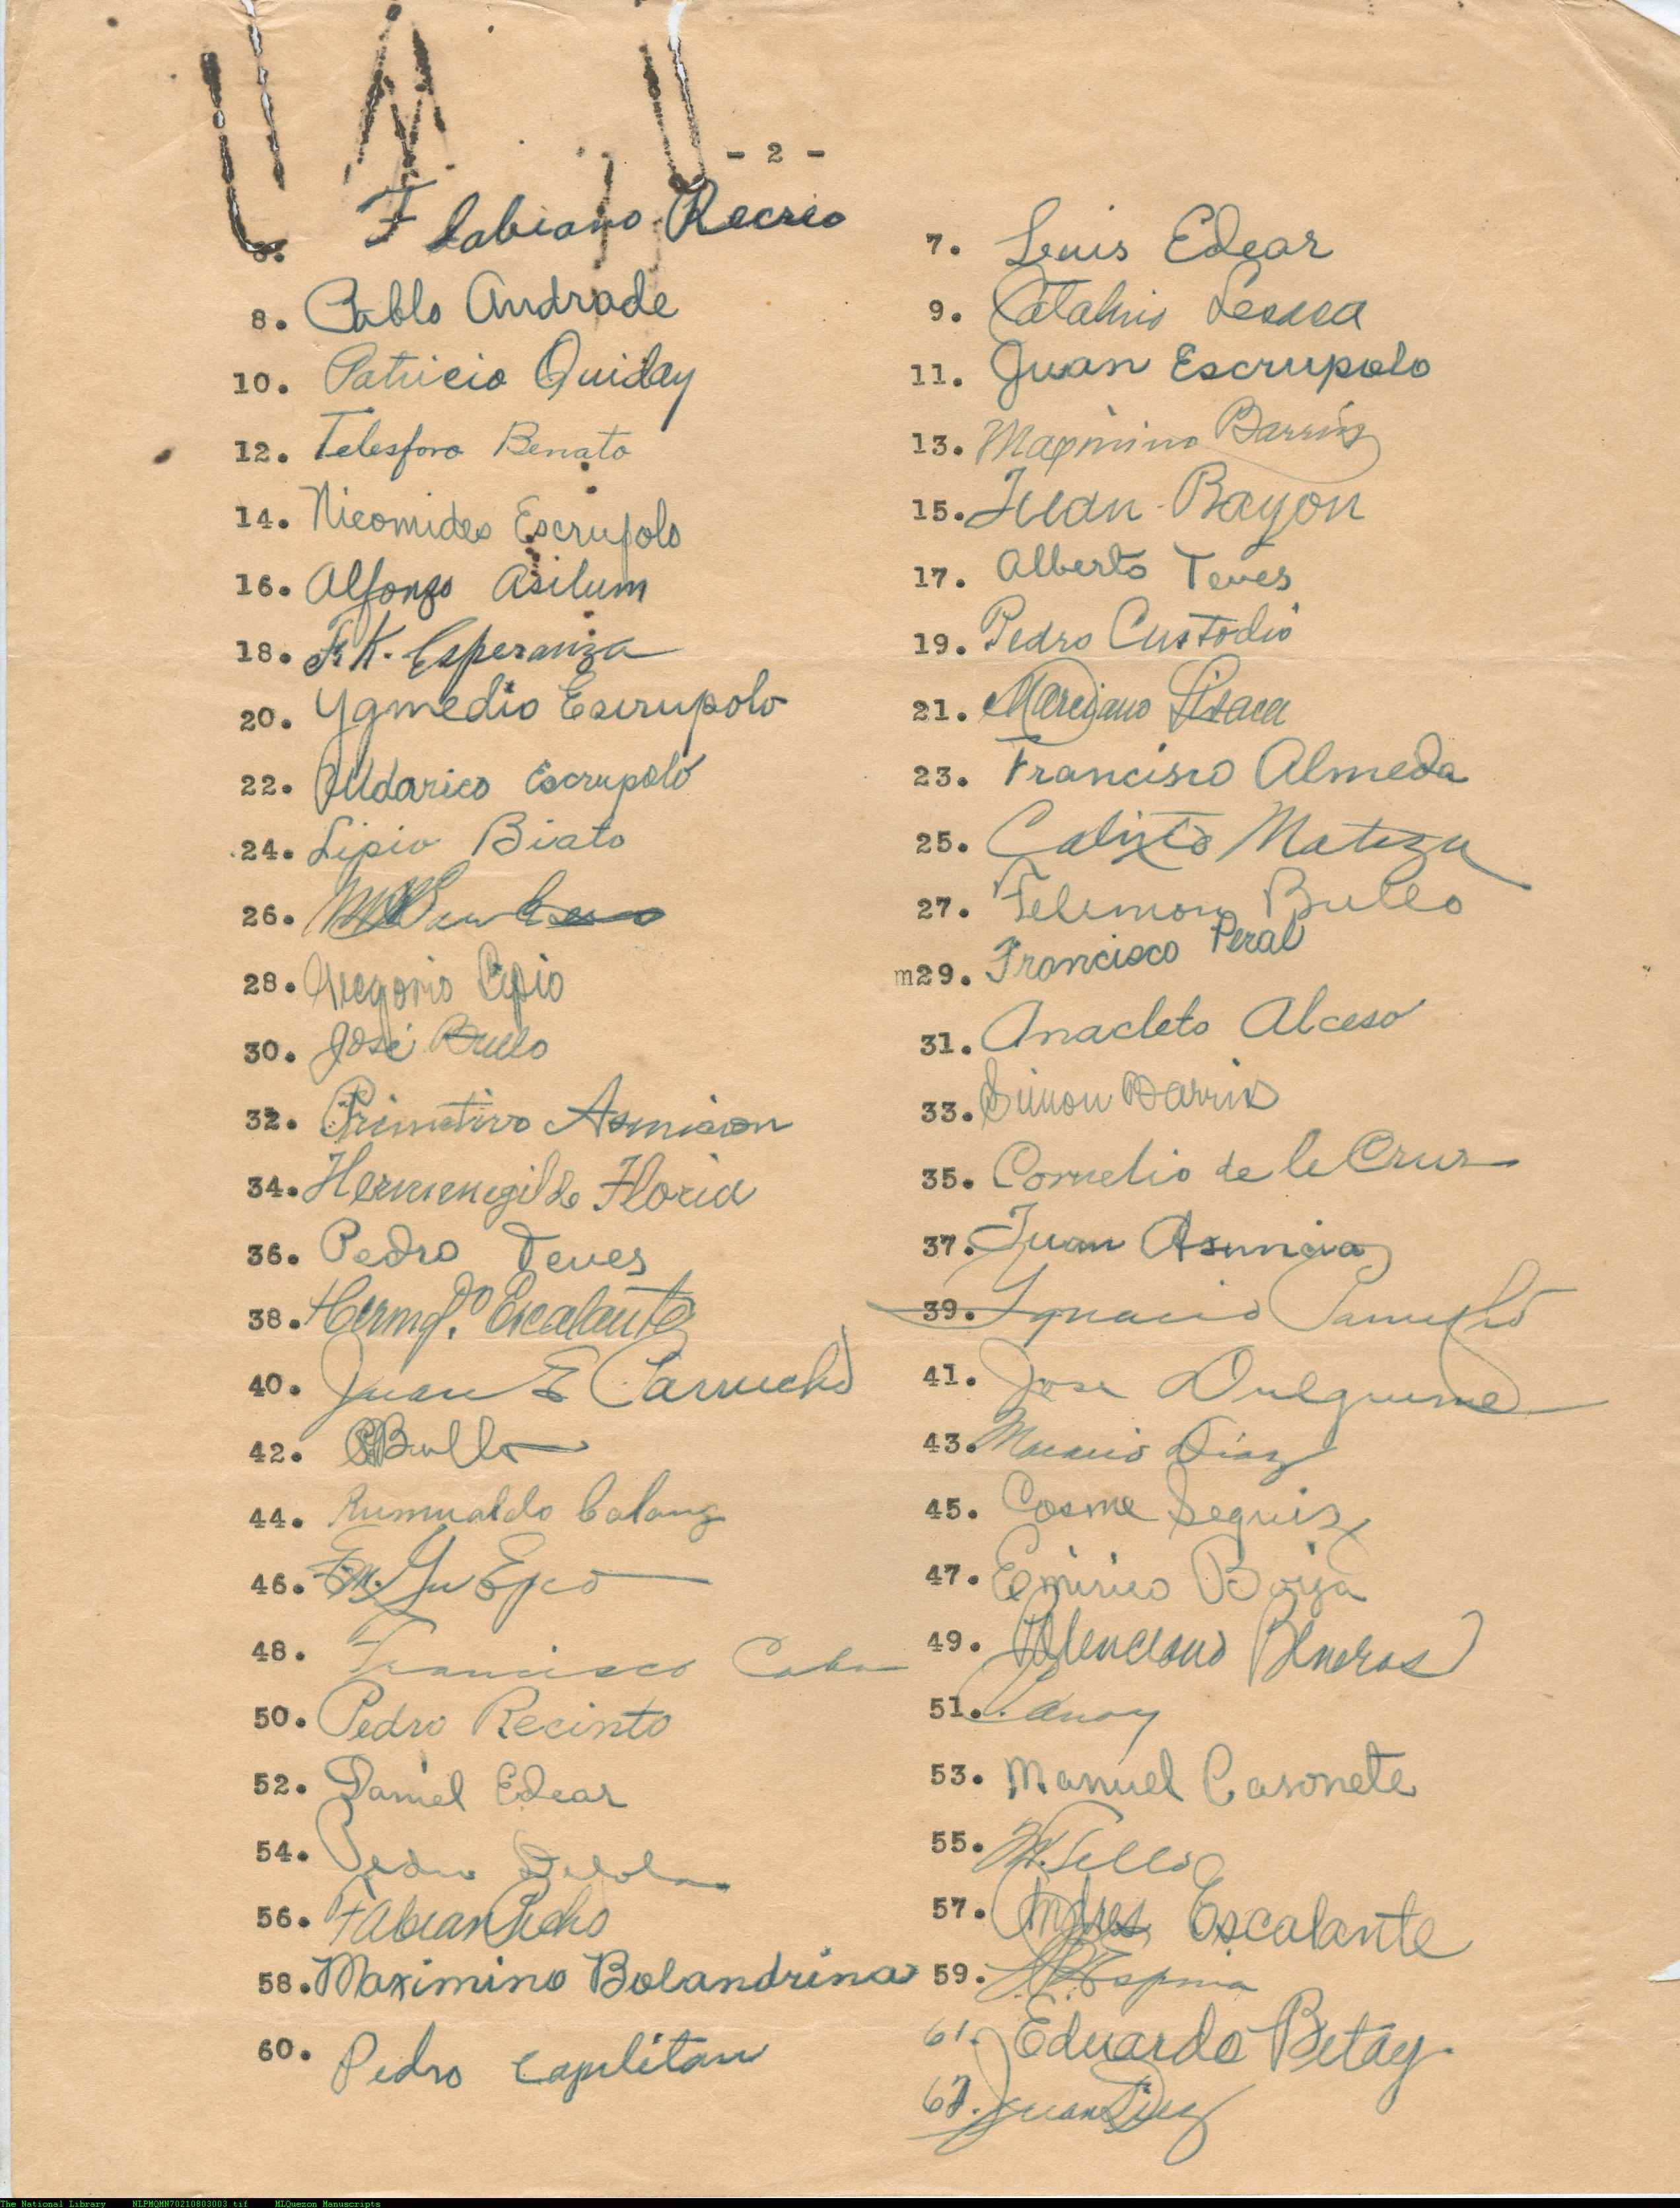 - 2 -
6. Flabiano Recrio
7. Luis Edear
8. Pablo Andrade
9. Catalino
10. Patricio Quiday
11. Juan Escrupolo
12. Telesforo Benato
13. Maximino Barrios
14. Nicomides Escrupolo
15. Juan Bayon
16. Alfonso Asilum
17. Alberto Teves
18. F. K. Esperanza
19. Pedro Custodio
20. Ygmedio Escrupolo
21. Marciano Lisaca
22. Uldarico Escrupolo
23. Francisco Almeda
24. Lipio Biato
25. Calixto
26.
27. Felimon Bullo
28. Gregorio
m29. Francisco Peral
30. José Bullo
31. Anacleto Alceso
32. Primitivo Asuncion
33. Simon Barrios
34. Hermenegildo Floria
35. Cornelio de la Cruz
36. Pedro Teves
37. Juan Asuncion
38. Hermg.do Escalante
39. Ignacio
40. Juan E Carrucho
41. Jose Dulguime
42. Bullo
43. Macario Diaz
44. Rumualdo Calang
45. Cosme Seguis
46.
47. Emirico Borja
48. Francisco
49. Valenciano
50. Pedro Recinto
51.
52. Daniel Edear
53. Manuel Casonete
54. Pedro
55. Tello
56. Fabian Picho
57. Andres Escalante
58. Maximino Bolandrina
59. Espina
60. Pedro Capulitan
61. Eduardo Betay
62. Juan Diaz
The National Library NLPMQMN70210803003.tif MLQuezon Manuscripts